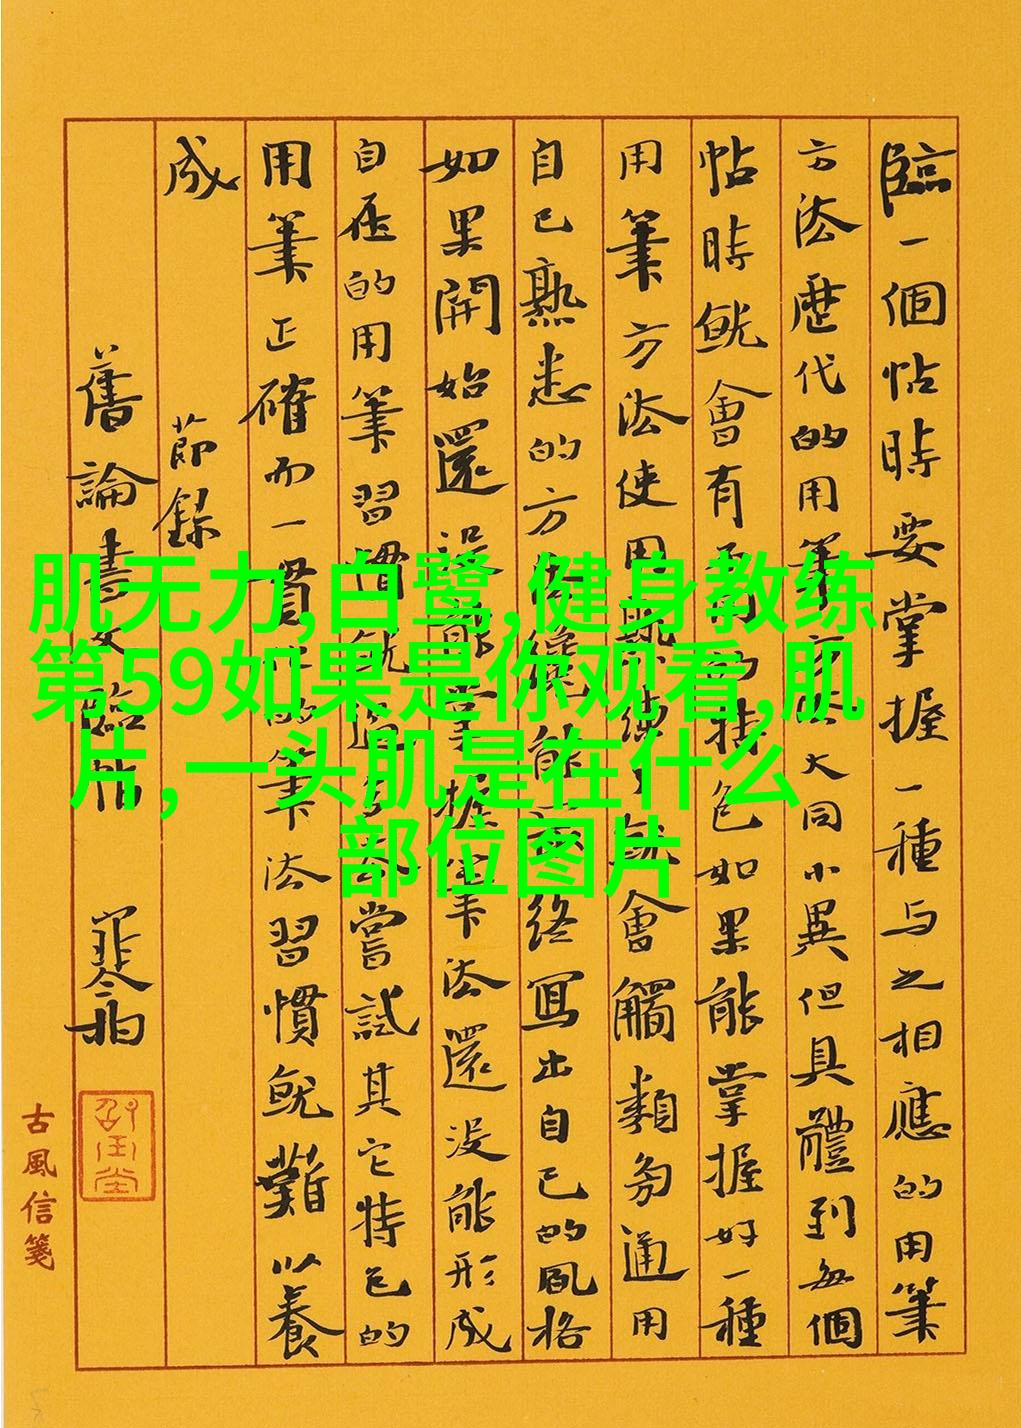 臨一個帖時要掌握一種与之相應的用筆
方法歷代的用筆方法大同小異但具體到每個
帖時就會有特色如果能掌握好一種
用筆方法使用熟練了就會觸類旁通用
自己熟悉的方法能終寫出自己的風格
如果開始還沒能掌握筆法還沒能形成
自在的用筆習慣就過多嘗試其它特色的
用筆正確而一貫的筆法習慣就難以養
成 節錄
舊論書臨帖
古風信箋
肌无力,白鹭,健身教练
第59如果是你观看,肌
片,一头肌是在什么
部位图片